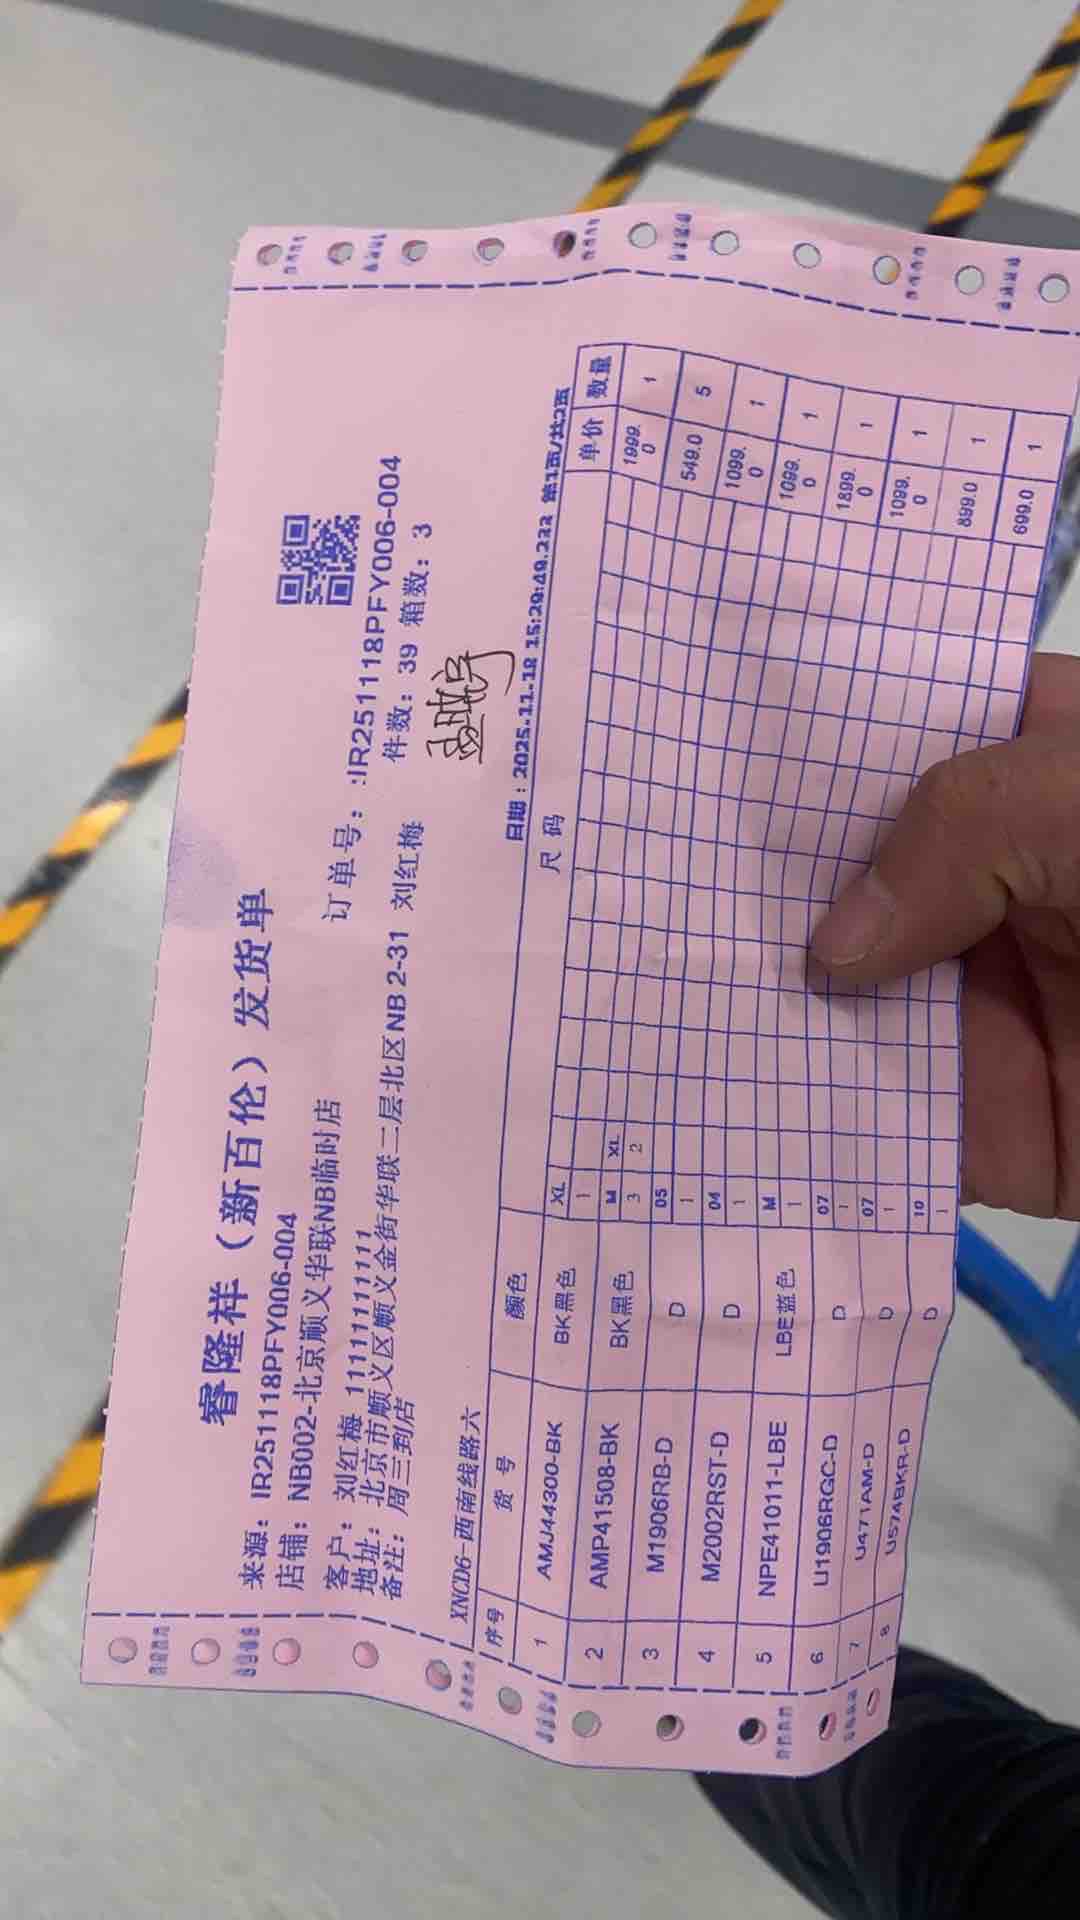 睿隆祥（新百伦）发货单
来源: IR251118PFY006-004 订单号: :IR251118PFY006-004
店铺: NB002-北京顺义华联NB临时店
客户: 刘红梅 11111111111 件数: 39 箱数: 3
地址: 北京市顺义区顺义金街华联二层北区NB 2-31 刘红梅
备注: 周三到店
XNCD6-西南线路六 日期: 2025-11-18 15:29:49.222 第1页/共2页
序号 货号 颜色 尺码 单价 数量
1 AMJ44300-BK BK黑色 XL 1 1999.0 1
2 AMP41508-BK BK黑色 M XL 3 2 549.0 5
3 M1906RB-D D 05 1 1099.0 1
4 M2002RST-D D 04 1 1099.0 1
5 NPE41011-LBE LBE蓝色 M 1 1899.0 1
6 U1906RGC-D D 07 1 1099.0 1
7 U471AM-D D 07 1 899.0 1
8 U574BKR-D D 10 1 699.0 1